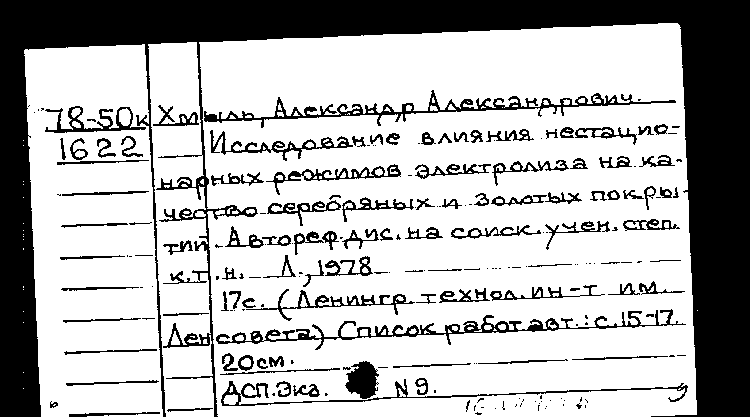 78-50к Хмыль, Александр Александрович.
1622 Исследование влияния нестацио-
нарных режимов электролиза на ка-
чество серебряных и золотых покры-
тий. Автореф. дис. на соиск. учен. степ.
к.т.н. Л., 1978
17с. (Ленингр. технол. ин-т им.
Ленсовета) Список работ авт.: с.15-17.
20см.
ДСП. Экз. N 9.